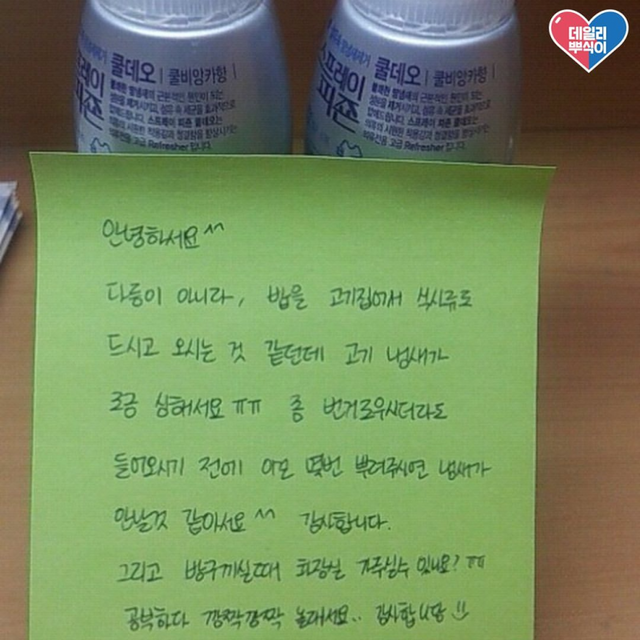 데일리
뿌식이
스프레이
피죤
쿨데오 | 쿨비앙카향 |
스프레이
피죤
쿨데오 | 쿨비앙카향 |
안녕하세요^^
다름이 아니라, 밥을 고기집에서 식사류로
드시고 오시는 것 같던데 고기 냄새가
조금 심해서요 ㅠㅠ 좀 번거로우시더라도
들어오시기 전에 이거 몇번 뿌려주시면 냄새가
안날것 같아서요^^ 감사합니다.
그리고 방구끼실때 화장실 가주실수 있나요? ㅠㅠ
공부하다 깜짝깜짝 놀래서요.. 감사합니당